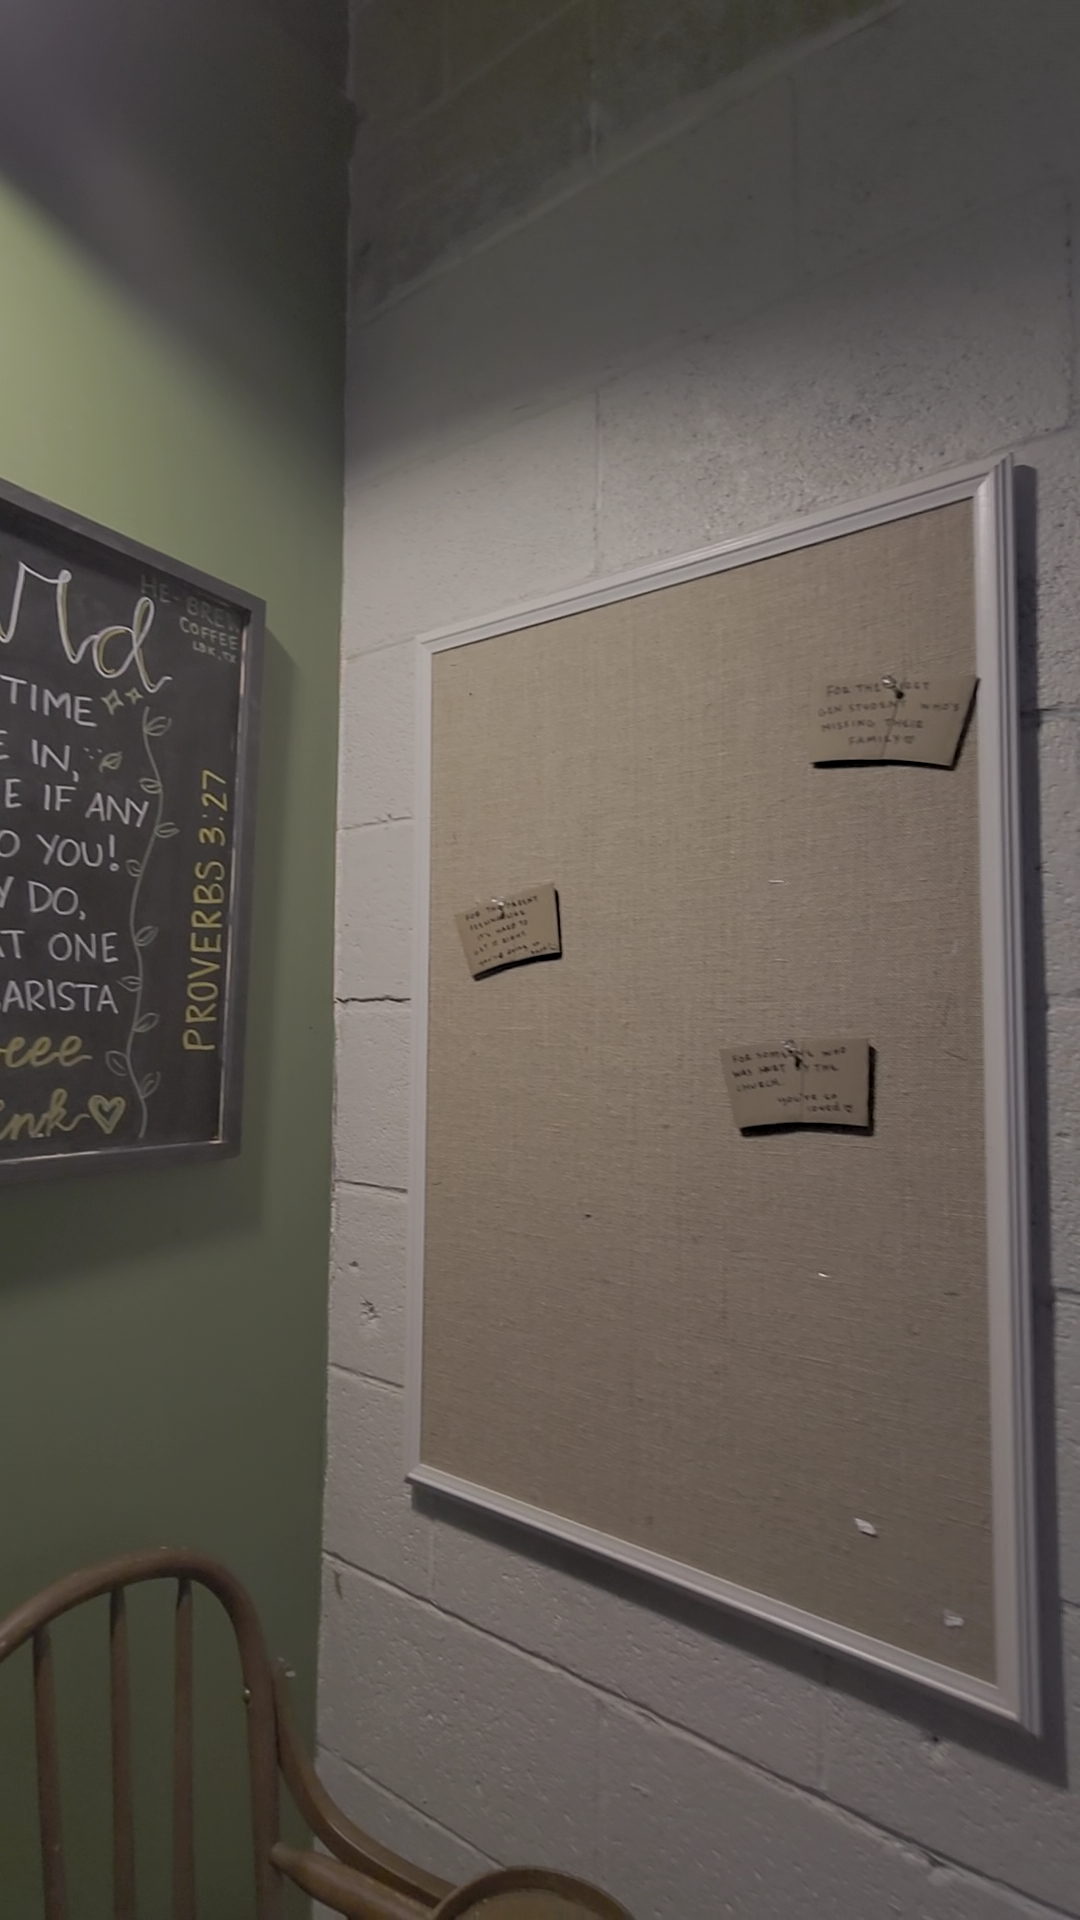 HE-BREW
COFFEE
LBK, TX
TIME
IN,
IF ANY
YOU!
DO,
ONE
PROVERBS 3:27
FOR THE FIRST
GEN STUDENT WHO'S
MISSING THEIR
FAMILY
FOR THE PARENT
IT'S HARD TO
GET IT RIGHT
you're doing
FOR SOMEONE WHO
WAS HURT BY THE
CHURCH.
you're so
loved